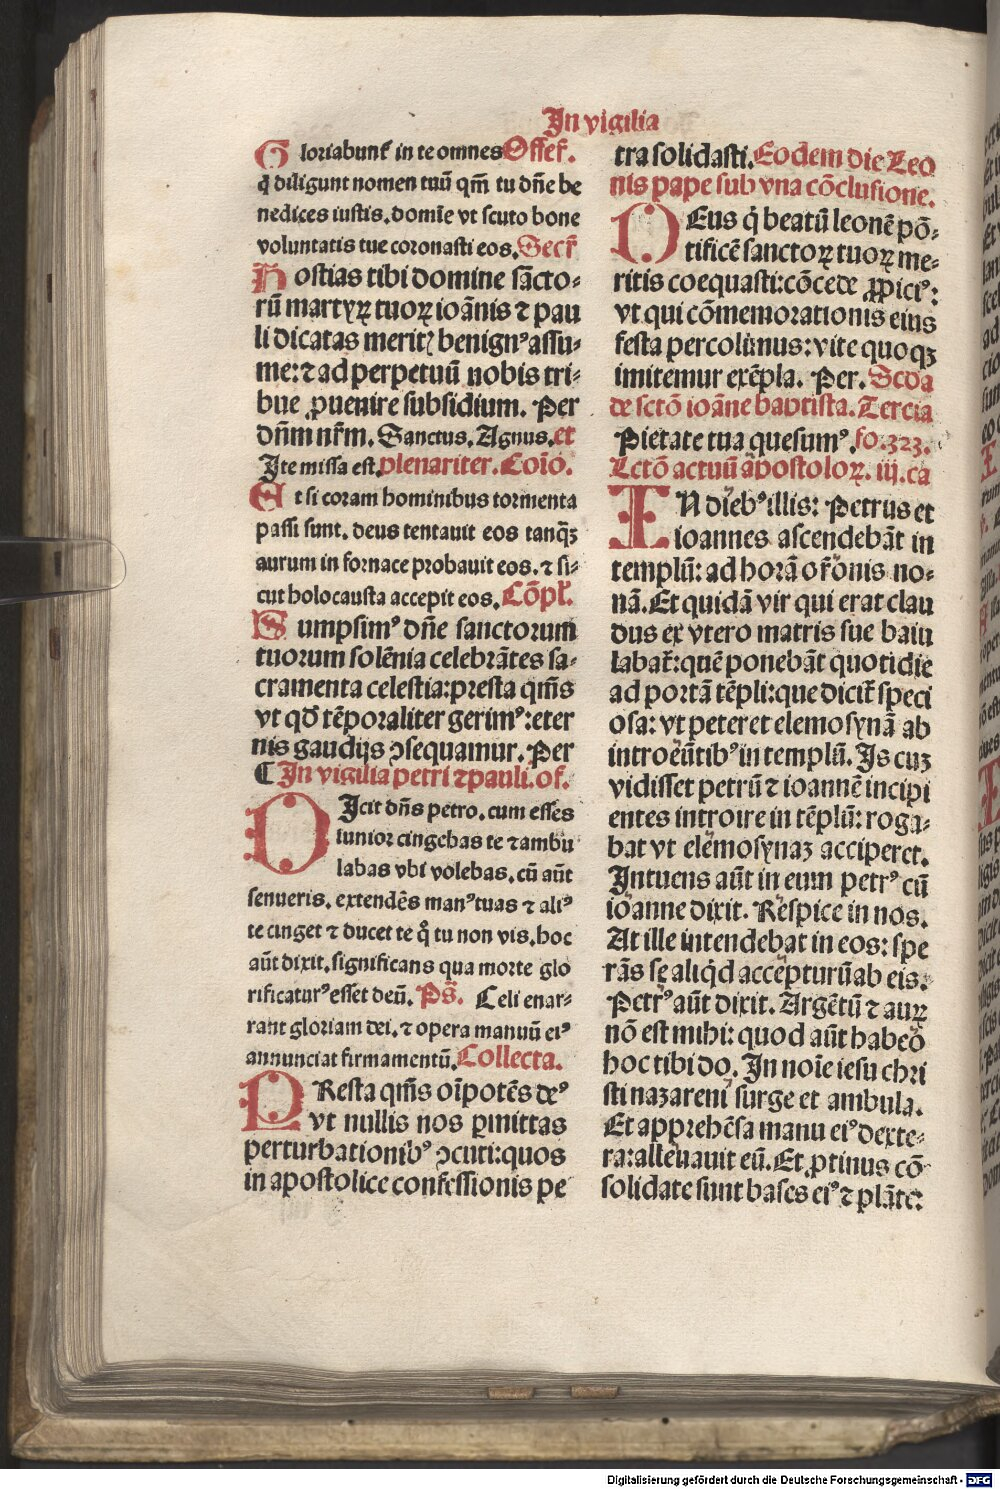 In vigilia
Gloriabunt᷑ in te omnes Offer̄.
q̇ diligunt nomen tuū qm̄ tu dn̄e be
nedices iustis. domīe vt scuto bone
voluntatis tue coronasti eos. Secr̄
Hostias tibi domine sācto-
rū martyꝝ tuoꝝ ioānis ⁊ pau
li dicatas meritꝭ benignꝰ assu-
me: ⁊ ad perpetuū nobis tri-
bue ꝓuenire subsidium. Per
dn̄m nr̄m. Sanctus. Agnus. et
Ite missa est. plenariter. Coīo.
Et si coram hominibus tormenta
passi sunt. deus tentauit eos tanqꝫ̄
aurum in fornace probauit eos. ⁊ si-
cut holocausta accepit eos. Cōpl̄.
Sumpsimꝰ dn̄e sanctorum
tuorum solēnia celebrātes sa-
cramenta celestia: presta qm̄s
vt qđ tēporaliter gerimꝰ: eter
nis gaudijs ꝯsequamur. Per
¶ In vigilia petri ⁊ pauli. of.
DIcit dn̄s petro. cum esses
iunior cingebas te ⁊ ambu
labas vbi volebas. cū aūt
senueris. extendēs manꝰ tuas ⁊ aliꝰ
te cinget ⁊ ducet te q̊ tu non vis. hoc
aūt dixit. significans qua morte glo
rificaturꝰ esset deū. Ps̄. Celi enar-
rant gloriam dei. ⁊ opera manuū eiꝰ
annunciat firmamentū. Collecta.
PResta qm̄s oīpotēs deꝰ
vt nullis nos ꝑmittas
perturbationibꝰ ꝯcuti: quos
in apostolice confessionis pe
tra solidasti. Eodem die Leo
nis pape sub vna cōclusione.
DEus q̇ beatū leonē pō-
tificē sanctoꝝ tuoꝝ me-
ritis coequasti: cōcede ꝓpiciꝰ:
vt qui cōmemorationis eius
festa percolimus: vite quoqꝫ
imitemur exēpla. Per. Scd̄a
de sctō ioāne baptista. Tercia
Pietate tua quesumꝰ. fo. 323.
Lctō actuū apostoloꝝ. iij. ca
IN diebꝰ illis: Petrus et
ioannes ascendebāt in
templū: ad horā or̄onis no-
nā. Et quidā vir qui erat clau
dus ex vtero matris sue baiu
labat᷑: quē ponebāt quotidie
ad portā tēpli: que dicit᷑ speci
osa: vt peteret elemosynā ab
introeūtibꝰ in templū. Is cuꝫ
vidisset petrū ⁊ ioannē incipi
entes introire in tēplū: roga-
bat vt elemosynaꝫ acciperet.
Intuens aūt in eum petrꝰ cū
ioanne dixit. Respice in nos.
At ille intendebat in eos: spe
rās se aliqd̓ accepturū ab eis.
Petrꝰ aūt dixit. Argētū ⁊ auꝝ
nō est mihi: quod aūt habeo
hoc tibi do. In noīe iesu chri
sti nazareni surge et ambula.
Et apprehēsa manu eiꝰ dexte-
ra: alleuauit eū. Et ꝓtinus cō
solidate sunt bases eiꝰ ⁊ plāte:
Digitalisierung gefördert durch die Deutsche Forschungsgemeinschaft - DFG